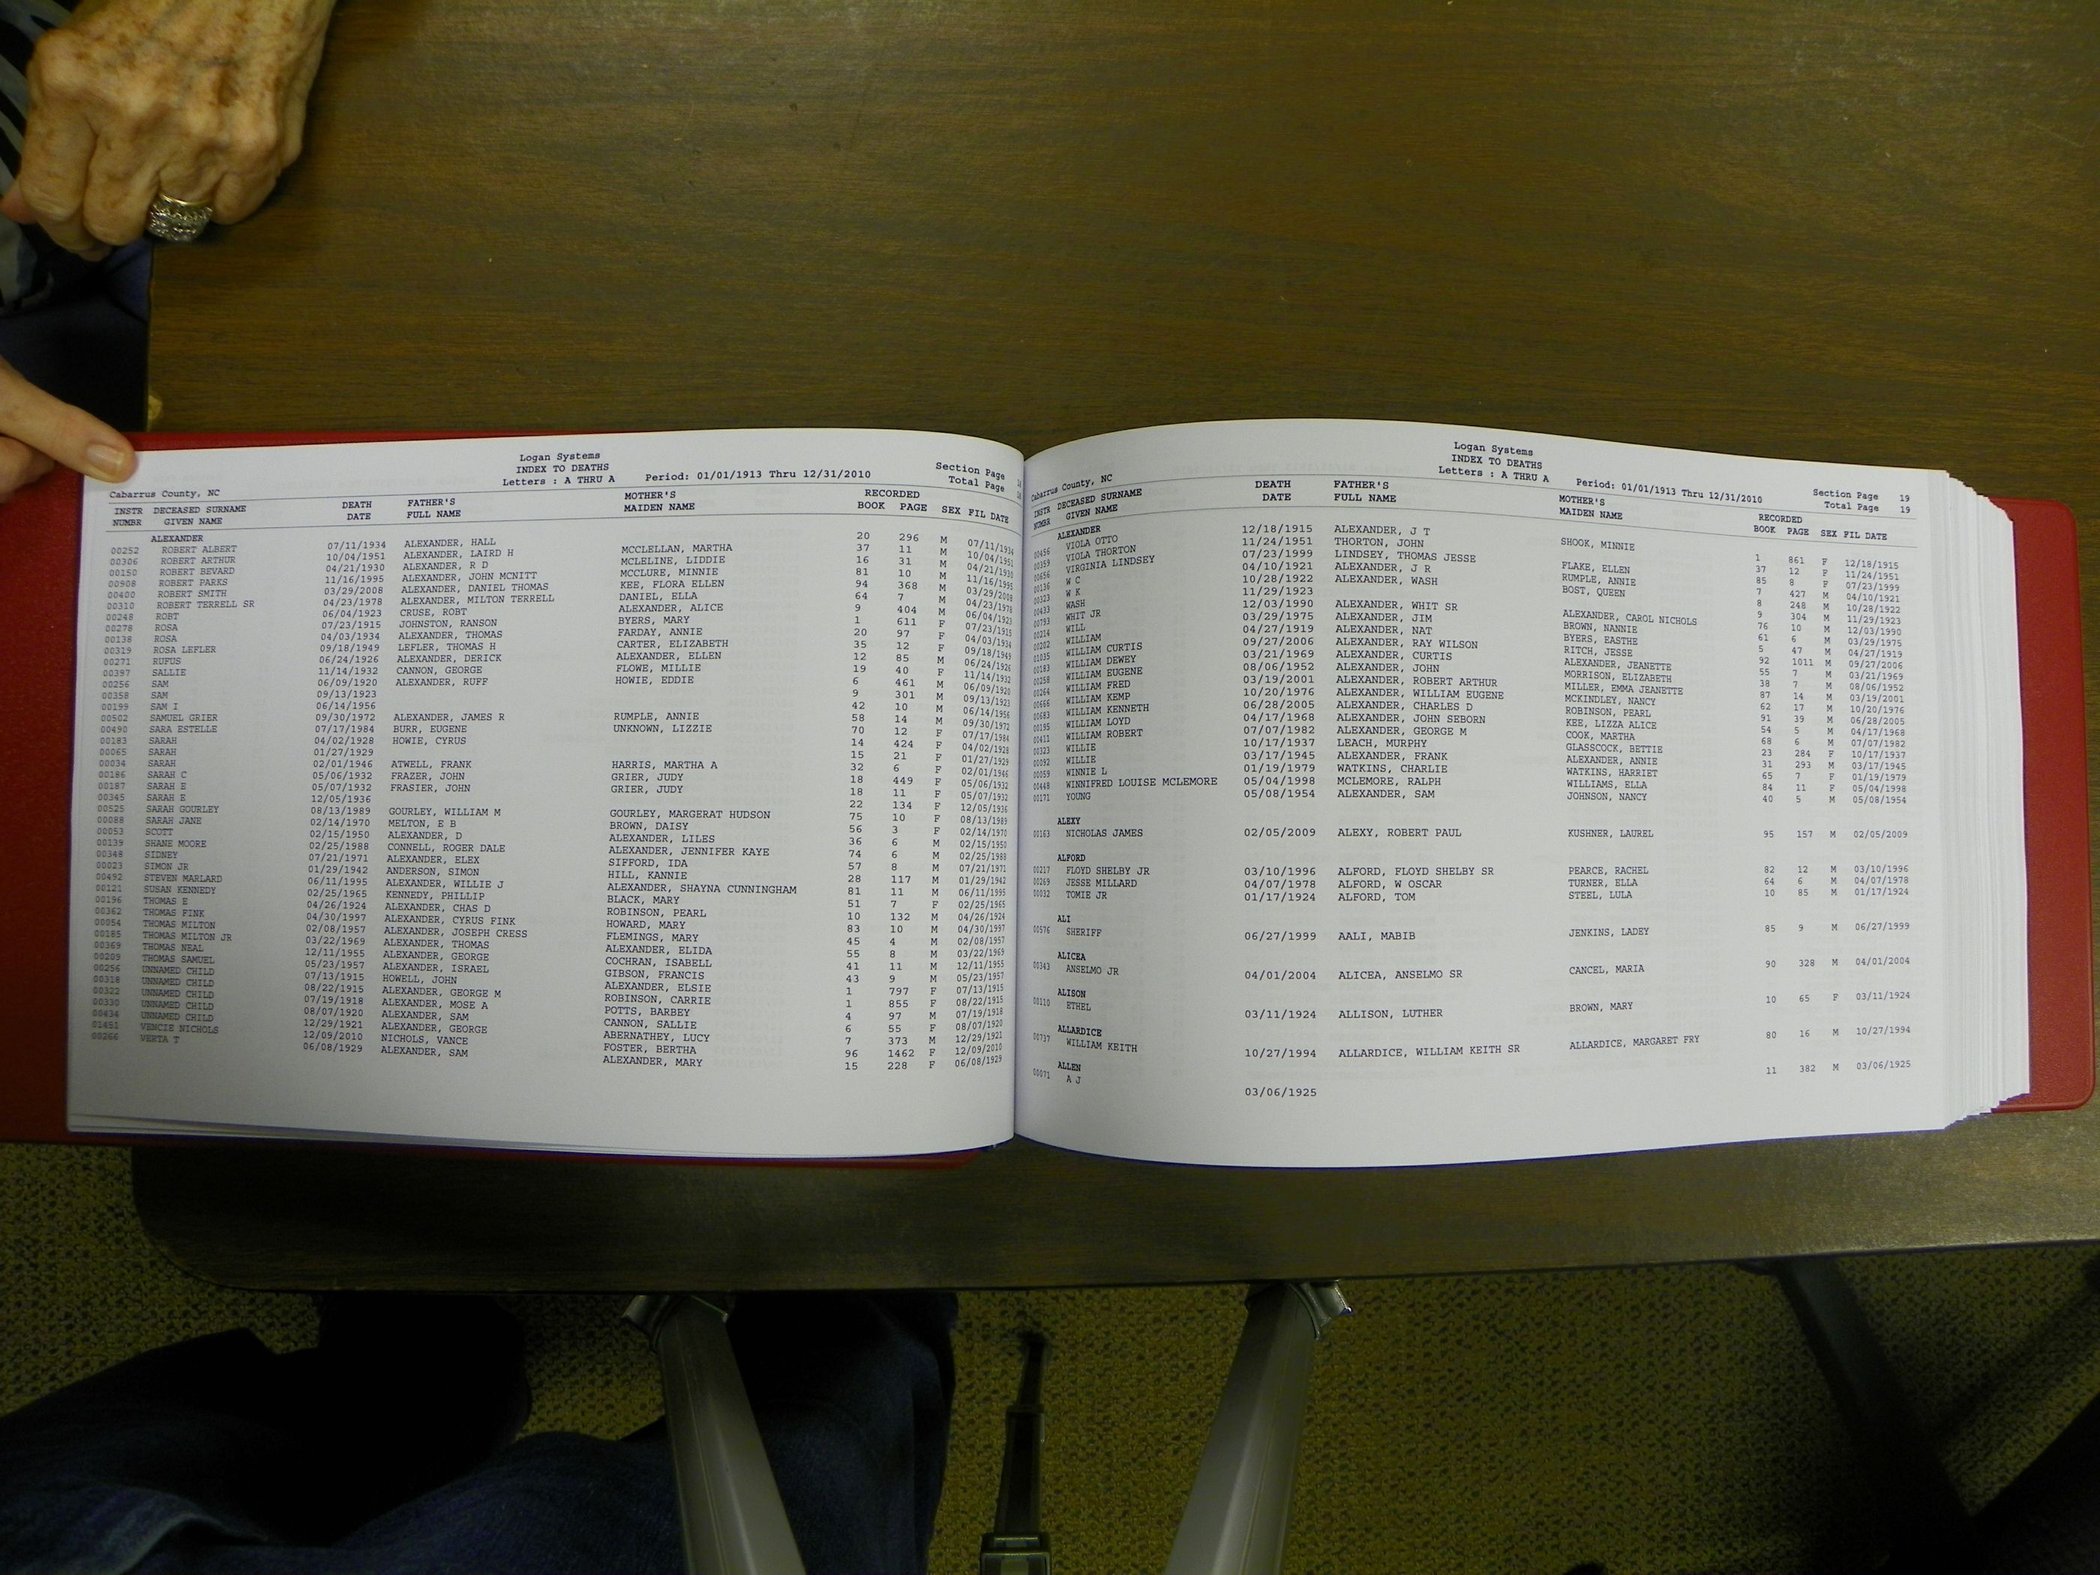 Logan Systems
INDEX TO DEATHS
Letters : A THRU A Period: 01/01/1913 Thru 12/31/2010
Section Page
Total Page
Cabarrus County, NC
INSTR DECEASED SURNAME DEATH FATHER'S MOTHER'S RECORDED
NUMBR GIVEN NAME DATE FULL NAME MAIDEN NAME BOOK PAGE SEX FIL DATE
ALEXANDER
00252 ROBERT ALBERT 07/11/1934 ALEXANDER, HALL 20 296 M 07/11/1934
00306 ROBERT ARTHUR 10/04/1951 ALEXANDER, LAIRD H MCCLELLAN, MARTHA 37 11 M 10/04/1951
00150 ROBERT BEVARD 04/21/1930 ALEXANDER, R D MCLELINE, LIDDIE 16 31 M 04/21/1930
00908 ROBERT PARKS 11/16/1995 ALEXANDER, JOHN MCNITT MCCLURE, MINNIE 81 10 M 11/16/1995
00400 ROBERT SMITH 03/29/2008 ALEXANDER, DANIEL THOMAS KEE, FLORA ELLEN 94 368 M 03/29/2008
00310 ROBERT TERRELL SR 04/23/1978 ALEXANDER, MILTON TERRELL DANIEL, ELLA 64 7 M 04/23/1978
00248 ROBT 06/04/1923 CRUSE, ROBT ALEXANDER, ALICE 9 404 M 06/04/1923
00278 ROSA 07/23/1915 JOHNSTON, RANSON BYERS, MARY 1 611 F 07/23/1915
00138 ROSA 04/03/1934 ALEXANDER, THOMAS FARDAY, ANNIE 20 97 F 04/03/1934
00319 ROSA LEFLER 09/18/1949 LEFLER, THOMAS H CARTER, ELIZABETH 35 12 F 09/18/1949
00271 RUFUS 06/24/1926 ALEXANDER, DERICK ALEXANDER, ELLEN 12 85 M 06/24/1926
00397 SALLIE 11/14/1932 CANNON, GEORGE FLOWE, MILLIE 19 40 F 11/14/1932
00256 SAM 06/09/1920 ALEXANDER, RUFF HOWIE, EDDIE 6 461 M 06/09/1920
00358 SAM 09/13/1923 9 301 M 09/13/1923
00199 SAM I 06/14/1956 42 10 M 06/14/1956
00502 SAMUEL GRIER 09/30/1972 ALEXANDER, JAMES R RUMPLE, ANNIE 58 14 M 09/30/1972
00490 SARA ESTELLE 07/17/1984 BURR, EUGENE UNKNOWN, LIZZIE 70 12 F 07/17/1984
00183 SARAH 04/02/1928 HOWIE, CYRUS 14 424 F 04/02/1928
00065 SARAH 01/27/1929 15 21 F 01/27/1929
00034 SARAH 02/01/1946 ATWELL, FRANK HARRIS, MARTHA A 32 6 F 02/01/1946
00186 SARAH C 05/06/1932 FRAZER, JOHN GRIER, JUDY 18 449 F 05/06/1932
00187 SARAH E 05/07/1932 FRASIER, JOHN GRIER, JUDY 18 11 F 05/07/1932
00345 SARAH E 12/05/1936 22 134 F 12/05/1936
00525 SARAH GOURLEY 08/13/1989 GOURLEY, WILLIAM M GOURLEY, MARGERAT HUDSON 75 10 F 08/13/1989
00088 SARAH JANE 02/14/1970 MELTON, E B BROWN, DAISY 56 3 F 02/14/1970
00053 SCOTT 02/15/1950 ALEXANDER, D ALEXANDER, LILES 36 6 M 02/15/1950
00139 SHANE MOORE 02/25/1988 CONNELL, ROGER DALE ALEXANDER, JENNIFER KAYE 74 6 M 02/25/1988
00348 SIDNEY 07/21/1971 ALEXANDER, ELEX SIFFORD, IDA 57 8 M 07/21/1971
00023 SIMON JR 01/29/1942 ANDERSON, SIMON HILL, KANNIE 28 117 M 01/29/1942
00492 STEVEN MARLARD 06/11/1995 ALEXANDER, WILLIE J ALEXANDER, SHAYNA CUNNINGHAM 81 11 M 06/11/1995
00121 SUSAN KENNEDY 02/25/1965 KENNEDY, PHILLIP BLACK, MARY 51 7 F 02/25/1965
00196 THOMAS E 04/26/1924 ALEXANDER, CHAS D ROBINSON, PEARL 10 132 M 04/26/1924
00362 THOMAS FINK 04/30/1997 ALEXANDER, CYRUS FINK HOWARD, MARY 83 10 M 04/30/1997
00054 THOMAS MILTON 02/08/1957 ALEXANDER, JOSEPH CRESS FLEMINGS, MARY 45 4 M 02/08/1957
00185 THOMAS MILTON JR 03/22/1969 ALEXANDER, THOMAS ALEXANDER, ELIDA 55 8 M 03/22/1969
00369 THOMAS NEAL 12/11/1955 ALEXANDER, GEORGE COCHRAN, ISABELL 41 11 M 12/11/1955
00209 THOMAS SAMUEL 05/23/1957 ALEXANDER, ISRAEL GIBSON, FRANCIS 43 9 M 05/23/1957
00256 UNNAMED CHILD 07/13/1915 HOWELL, JOHN ALEXANDER, ELSIE 1 797 F 07/13/1915
00318 UNNAMED CHILD 08/22/1915 ALEXANDER, GEORGE M ROBINSON, CARRIE 1 855 F 08/22/1915
00322 UNNAMED CHILD 07/19/1918 ALEXANDER, MOSE A POTTS, BARBEY 4 97 M 07/19/1918
00330 UNNAMED CHILD 08/07/1920 ALEXANDER, SAM CANNON, SALLIE 6 55 F 08/07/1920
00434 UNNAMED CHILD 12/29/1921 ALEXANDER, GEORGE ABERNATHEY, LUCY 7 373 M 12/29/1921
01451 VENCIE NICHOLS 12/09/2010 NICHOLS, VANCE FOSTER, BERTHA 96 1462 F 12/09/2010
00266 VERTA T 06/08/1929 ALEXANDER, SAM ALEXANDER, MARY 15 228 F 06/08/1929
Logan Systems
INDEX TO DEATHS
Letters : A THRU A Period: 01/01/1913 Thru 12/31/2010
Section Page 19
Total Page 19
Cabarrus County, NC
INSTR DECEASED SURNAME DEATH FATHER'S MOTHER'S RECORDED
NUMBR GIVEN NAME DATE FULL NAME MAIDEN NAME BOOK PAGE SEX FIL DATE
ALEXANDER
00456 VIOLA OTTO 12/18/1915 ALEXANDER, J T SHOOK, MINNIE 1 861 F 12/18/1915
00359 VIOLA THORTON 11/24/1951 THORTON, JOHN 37 12 F 11/24/1951
00656 VIRGINIA LINDSEY 07/23/1999 LINDSEY, THOMAS JESSE FLAKE, ELLEN 85 8 F 07/23/1999
00136 W C 04/10/1921 ALEXANDER, J R RUMPLE, ANNIE 7 427 M 04/10/1921
00323 W K 10/28/1922 ALEXANDER, WASH BOST, QUEEN 8 248 M 10/28/1922
00433 WASH 11/29/1923 9 304 M 11/29/1923
00793 WHIT JR 12/03/1990 ALEXANDER, WHIT SR ALEXANDER, CAROL NICHOLS 76 10 M 12/03/1990
00214 WILL 03/29/1975 ALEXANDER, JIM BROWN, NANNIE 61 6 M 03/29/1975
00202 WILLIAM 04/27/1919 ALEXANDER, NAT BYERS, EASTHE 5 47 M 04/27/1919
01035 WILLIAM CURTIS 09/27/2006 ALEXANDER, RAY WILSON RITCH, JESSE 92 1011 M 09/27/2006
00183 WILLIAM DEWEY 03/21/1969 ALEXANDER, CURTIS ALEXANDER, JEANETTE 55 7 M 03/21/1969
00258 WILLIAM EUGENE 08/06/1952 ALEXANDER, JOHN MORRISON, ELIZABETH 38 7 M 08/06/1952
00264 WILLIAM FRED 03/19/2001 ALEXANDER, ROBERT ARTHUR MILLER, EMMA JEANETTE 87 14 M 03/19/2001
00666 WILLIAM KEMP 10/20/1976 ALEXANDER, WILLIAM EUGENE MCKINDLEY, NANCY 62 17 M 10/20/1976
00683 WILLIAM KENNETH 06/28/2005 ALEXANDER, CHARLES D ROBINSON, PEARL 91 39 M 06/28/2005
00195 WILLIAM LOYD 04/17/1968 ALEXANDER, JOHN SEBORN KEE, LIZZA ALICE 54 5 M 04/17/1968
00411 WILLIAM ROBERT 07/07/1982 ALEXANDER, GEORGE M COOK, MARTHA 68 6 M 07/07/1982
00323 WILLIE 10/17/1937 LEACH, MURPHY GLASSCOCK, BETTIE 23 284 F 10/17/1937
00092 WILLIE 03/17/1945 ALEXANDER, FRANK ALEXANDER, ANNIE 31 293 M 03/17/1945
00059 WINNIE L 01/19/1979 WATKINS, CHARLIE WATKINS, HARRIET 65 7 F 01/19/1979
00448 WINNIFRED LOUISE MCLEMORE 05/04/1998 MCLEMORE, RALPH WILLIAMS, ELLA 84 11 F 05/04/1998
00171 YOUNG 05/08/1954 ALEXANDER, SAM JOHNSON, NANCY 40 5 M 05/08/1954
ALEXY
00163 NICHOLAS JAMES 02/05/2009 ALEXY, ROBERT PAUL KUSHNER, LAUREL 95 157 M 02/05/2009
ALFORD
00217 FLOYD SHELBY JR 03/10/1996 ALFORD, FLOYD SHELBY SR PEARCE, RACHEL 82 12 M 03/10/1996
00269 JESSE MILLARD 04/07/1978 ALFORD, W OSCAR TURNER, ELLA 64 6 M 04/07/1978
00032 TOMIE JR 01/17/1924 ALFORD, TOM STEEL, LULA 10 85 M 01/17/1924
ALI
00576 SHERIFF 06/27/1999 AALI, MABIB JENKINS, LADEY 85 9 M 06/27/1999
ALICEA
00343 ANSELMO JR 04/01/2004 ALICEA, ANSELMO SR CANCEL, MARIA 90 328 M 04/01/2004
ALISON
00110 ETHEL 03/11/1924 ALLISON, LUTHER BROWN, MARY 10 65 F 03/11/1924
ALLARDICE
00737 WILLIAM KEITH 10/27/1994 ALLARDICE, WILLIAM KEITH SR ALLARDICE, MARGARET FRY 80 16 M 10/27/1994
ALLEN
00071 A J 03/06/1925 11 382 M 03/06/1925